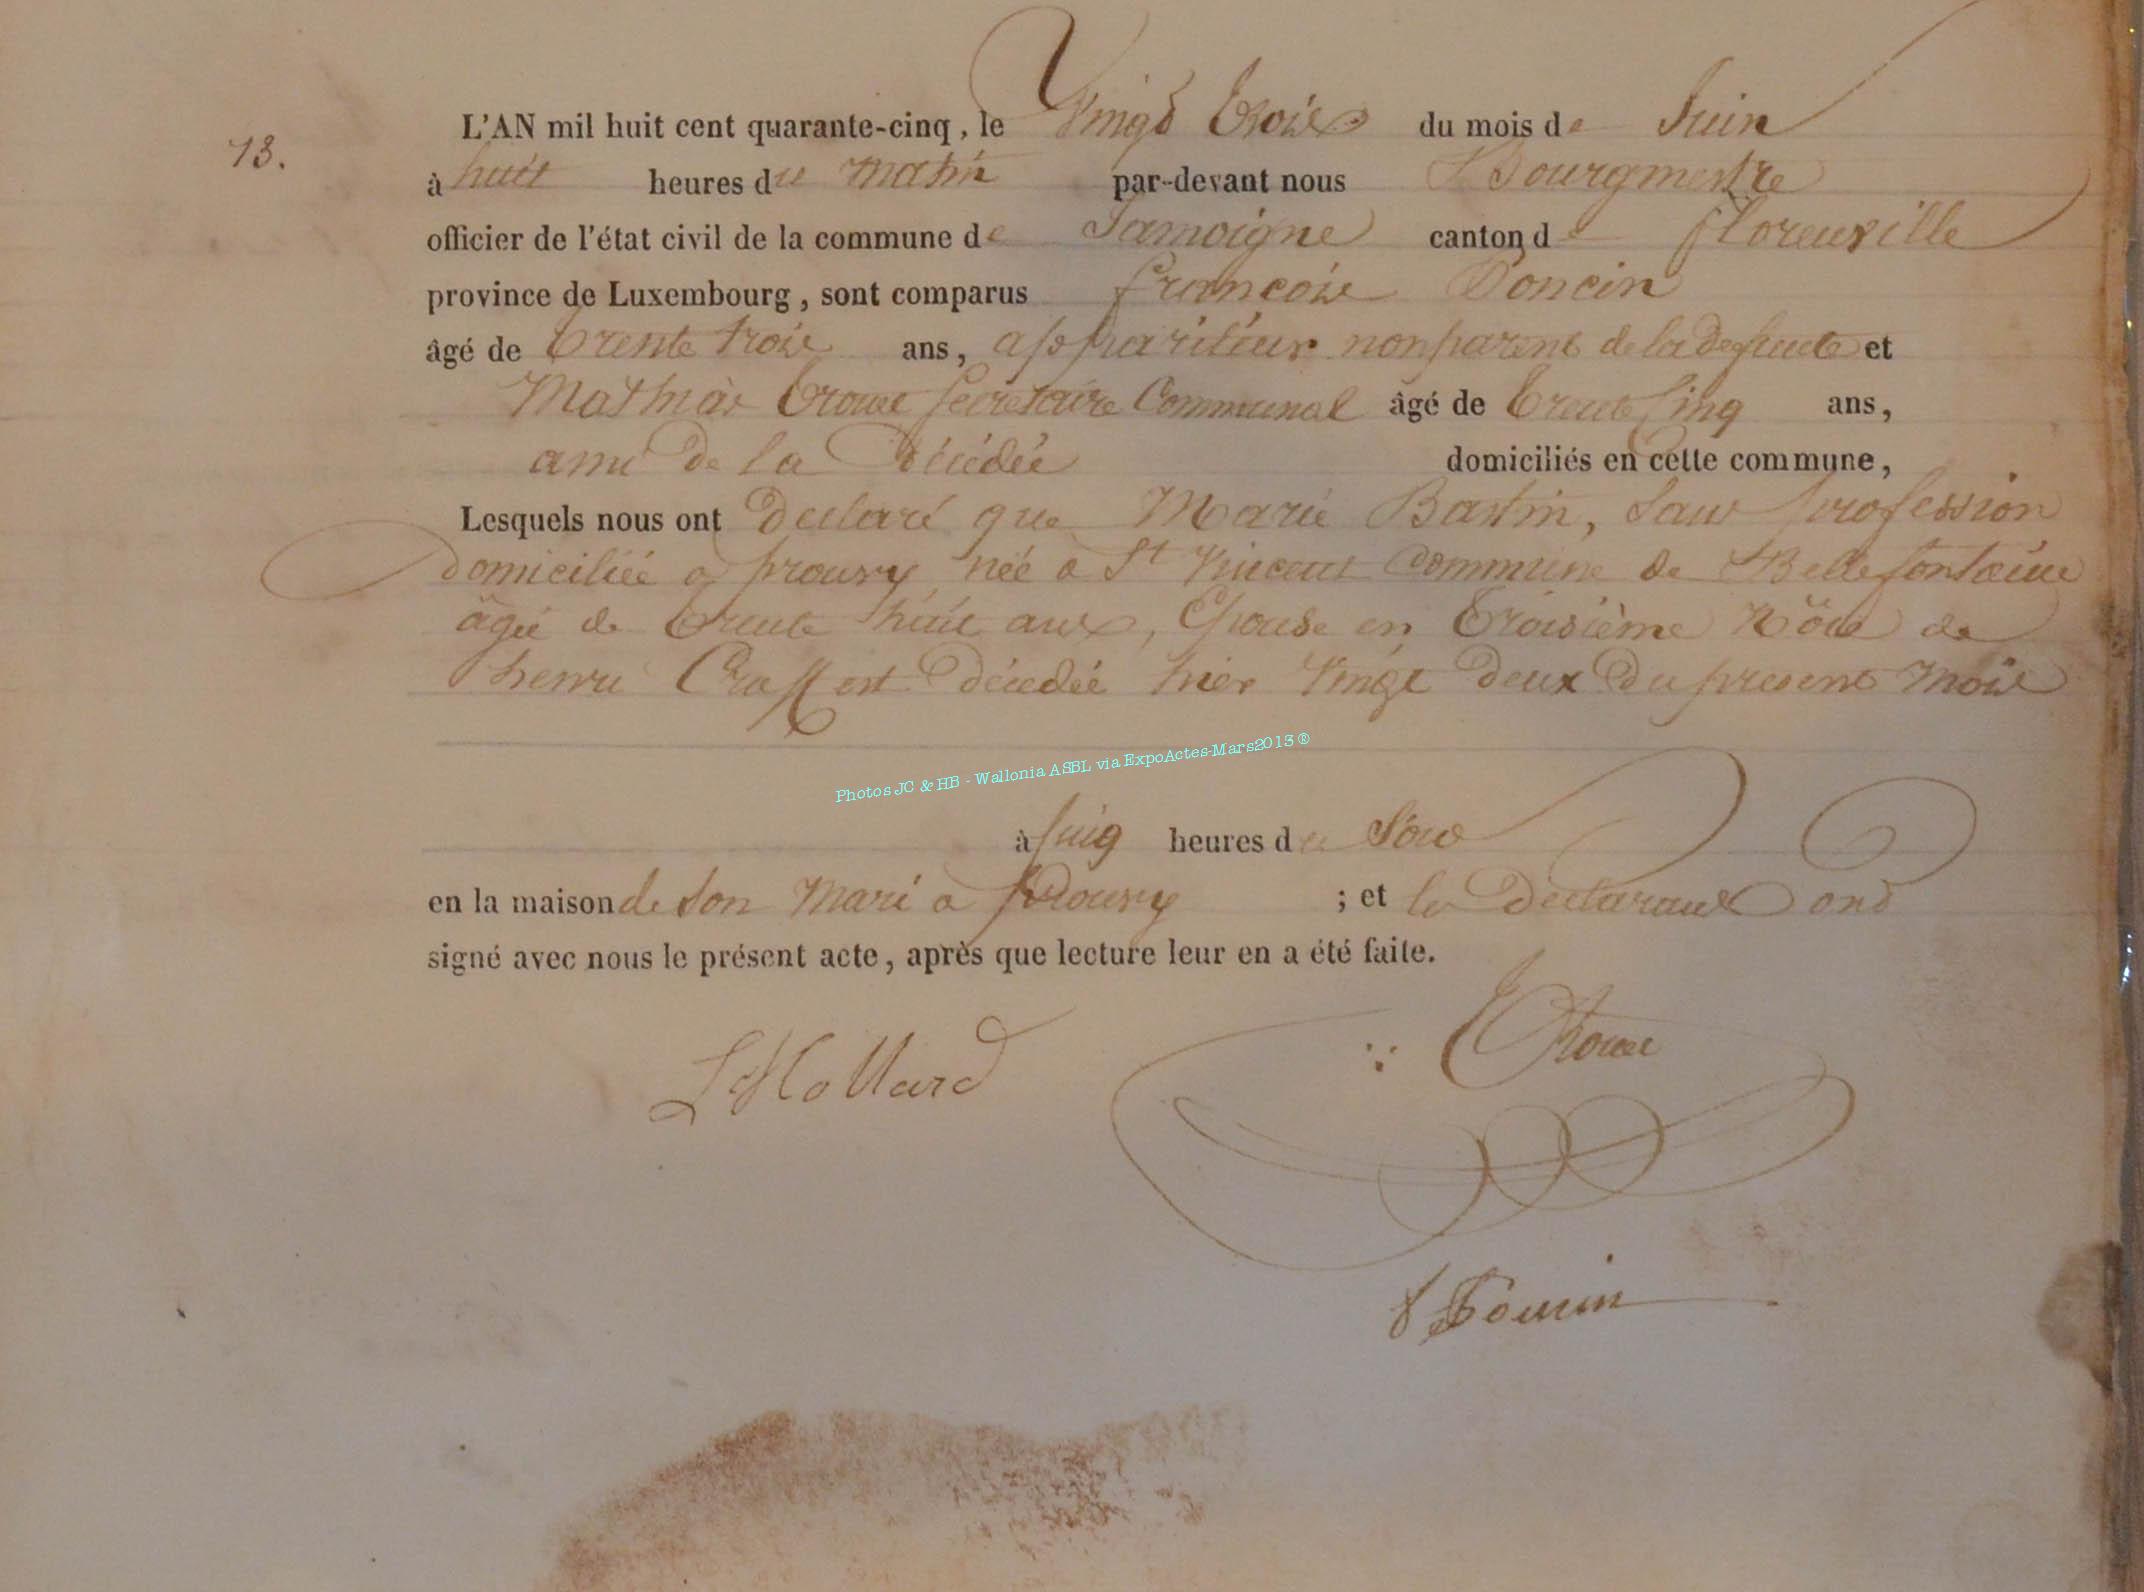 13.
L'AN mil huit cent quarante-cinq, le Vingt trois du mois de Juin
à huit heures du matin par-devant nous Bourgmestre
officier de l'état civil de la commune de Jamoigne canton de florenville
province de Luxembourg, sont comparus françois Poncin
âgé de trente trois ans, appariteur non parent de la defunte et
Mathias Secretaire Communal âgé de trente Cinq ans,
ami de la décédée domiciliés en cette commune,
Lesquels nous ont declaré que Marie Bastin, Sans profession
domiciliée a prouvy née a St Vincent Commune de Bellefontaine
âgée de trente huit ans, Epouse en troisième Nôce de
henri est décédée hier Vingt deux du present mois
Photos JC & HB - Wallonia ASBL via ExpoActes-Mars2013 ®
à heures du Soir
en la maison de Son Mari a Prouvy ; et les Declarants ont
signé avec nous le présent acte, après que lecture leur en a été faite.